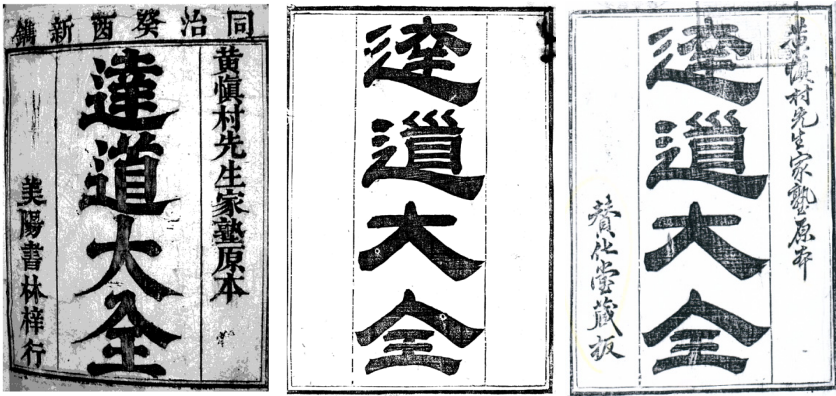 同治癸酉新鐫
黄慎村先生家塾原本
達道大全
美陽書林梓行
達道大全
黄慎村先生家塾原本
達道大全
賛化堂藏板